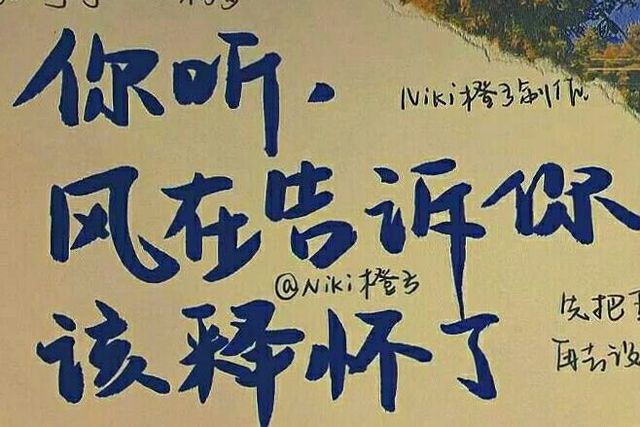 你听，
Niki橙子制作
风在告诉你
@Niki橙子
先把
该释怀了
再去没